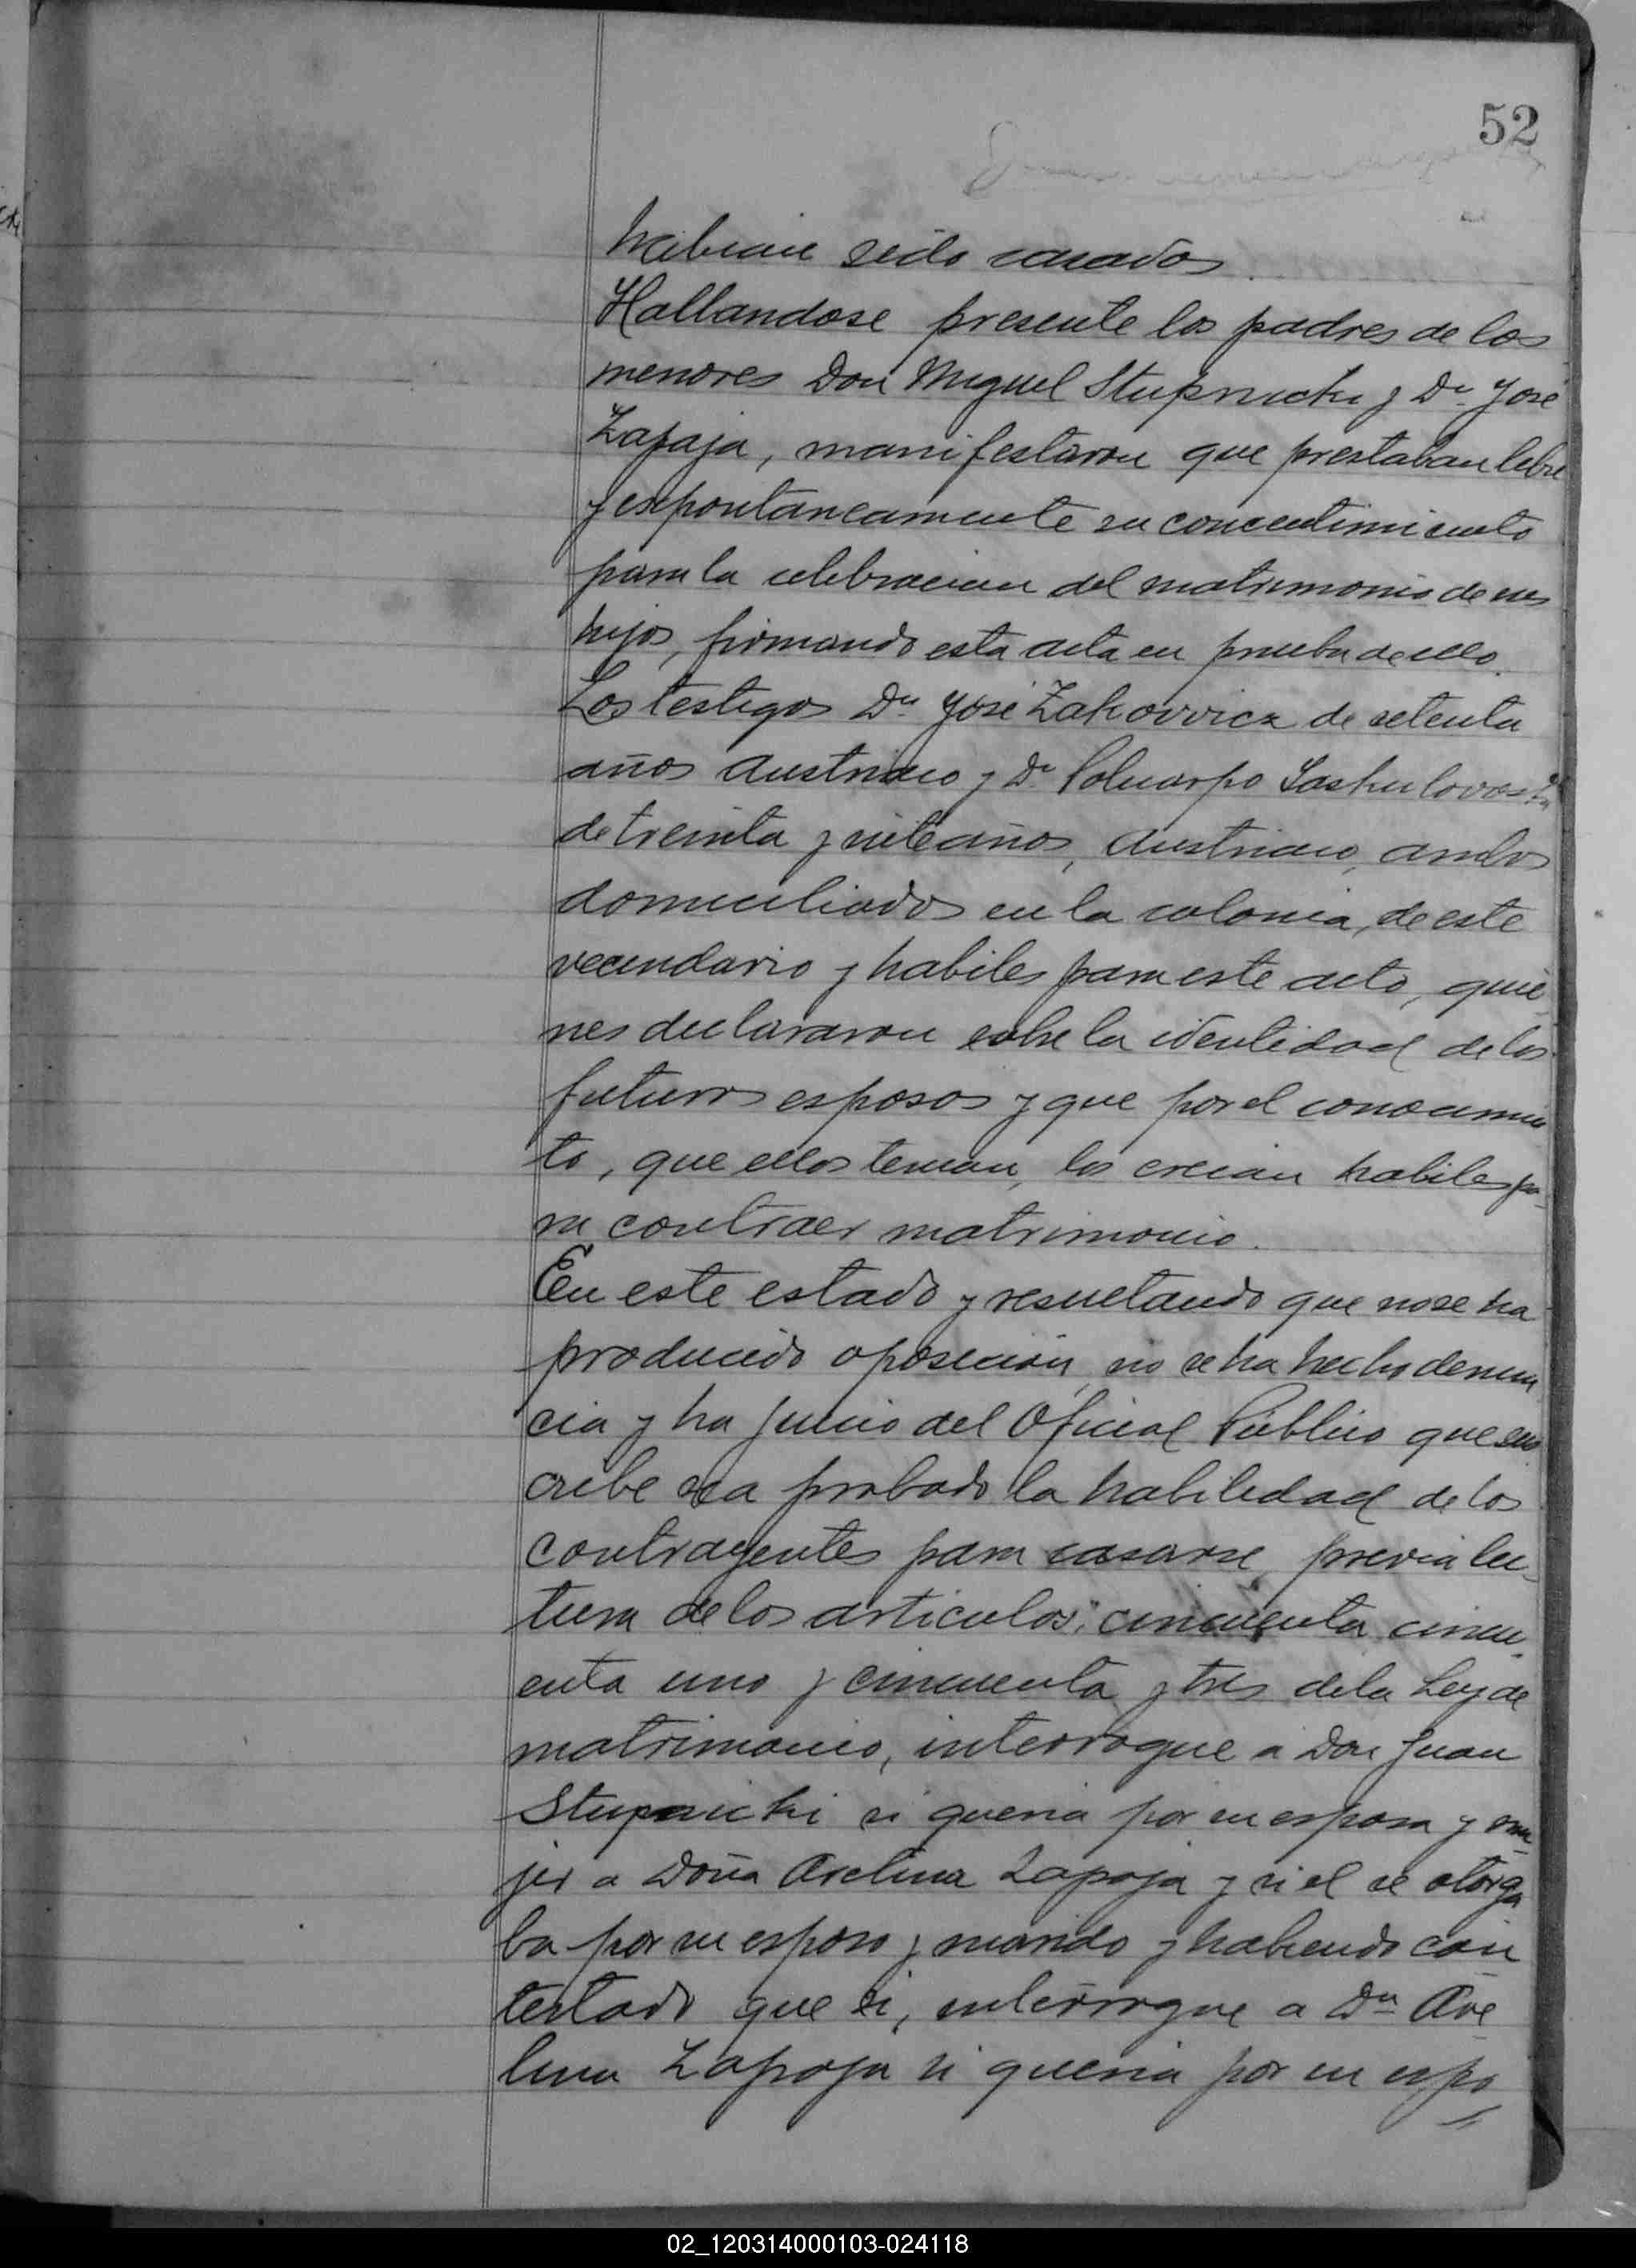 52
habian sido casados.
Hallandose presente los padres de los
menores Don Miguel Stupnicki y Dn José
Zapaja, manifestaron que prestaban libre
y espontaneamente su concentimiento
para la celebracion del matrimonio de sus
hijos, firmando esta acta en prueba de ello.
Los testigos Dn José Zakovvicz de setenta
años Austriaco y Dn Policarpo
de treinta y siete años, Austriaco, ambos
domiciliados en la colonia, de este
vecindario y habiles para este acto, quie
nes declararon sobre la identidad de los
futuros esposos y que por el conocimien
to, que ellos tenian, los creian habiles pa-
ra contraer matrimonio.
En este estado y resultando que no se ha
producido oposicion, no se ha hecho denun
cia y ha juicio del Oficial Publico que sus
cribe sea probado la habilidad de los
contrayentes para casarse, previa lec-
tura de los articulos, cincuenta, cincu-
enta uno y cincuenta y tres de la Ley de
matrimonio, interrogue a Don Juan
Stupnicki si queria por su esposa y mu-
jer a Doña Avelina Zapaja y si el se otorga
ba por su esposo y marido y habiendo con
testado que si, interrogue a Da Ave
lina Zapaja si queria por su espo
02_120314000103-024118